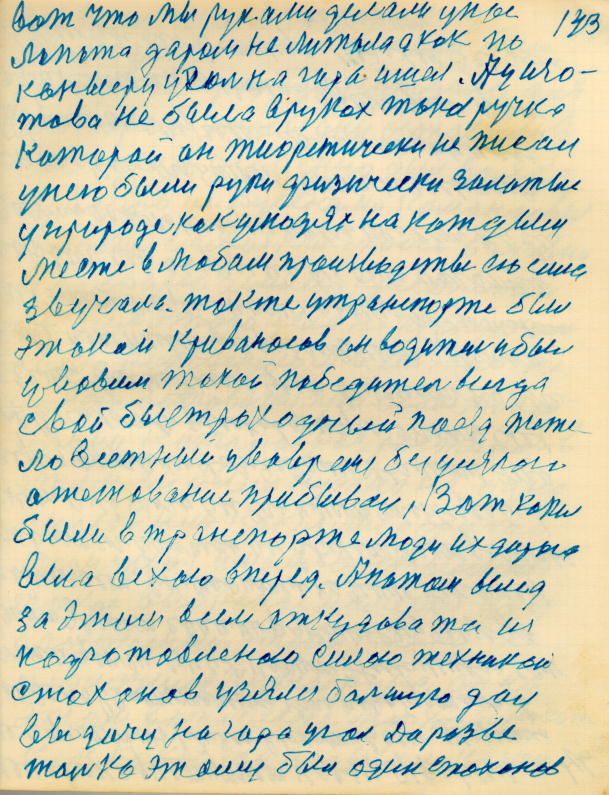 вот что мы руками делали у нас 143
лопата даром не литала а как по
конверу уголь на гара ишол. А у його-
това не была в руках тока ручка
каторой он тиоретически не писал
у нею были руки физически залатые
у природе как у людях на каждым
месте в любом производстве
звучала. также у транспорте был
этакой Кривоносов он водител и был
у новым такой победител всегда
свой быстроходный поезд тяже-
ловестный увовремя без
прибывал, Вот каки
были в транспорте люди их дарога
вила вехою вперед. А потом вслед
за этим всем откудова та и
подготовленою силою техникой
стаханов узяли балшую дал
выдачу на гара угол Да разве
толко этому был один стаханов